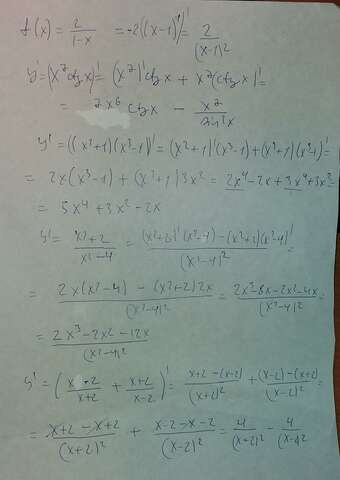 f(x) = 2/(1-x) = -2((x-1)^-1)' = 2/(x-1)^2
y' = (x^7 ctg x)' = (x^7)' ctg x + x^7 (ctg x)' =
= 7x^6 ctg x - x^7/sin^2 x
y' = ((x^2+1)(x^3-1))' = (x^2+1)'(x^3-1) + (x^2+1)(x^3-1)' =
= 2x(x^3-1) + (x^2+1)3x^2 = 2x^4 - 2x + 3x^4 + 3x^2 =
= 5x^4 + 3x^2 - 2x
y' = (x^2+2)/(x^2-4) = ((x^2+2)'(x^2-4) - (x^2+2)(x^2-4)')/(x^2-4)^2
= (2x(x^2-4) - (x^2+2)2x)/(x^2-4)^2 = (2x^3-8x-2x^3-4x)/(x^2-4)^2 =
= (2x^3-2x^2-12x)/(x^2-4)^2
y' = ((x-2)/(x+2) + (x+2)/(x-2))' = (x+2-(x-2))/(x+2)^2 + ((x-2)-(x+2))/(x-2)^2 =
= (x+2-x+2)/(x+2)^2 + (x-2-x-2)/(x-2)^2 = 4/(x+2)^2 - 4/(x-2)^2